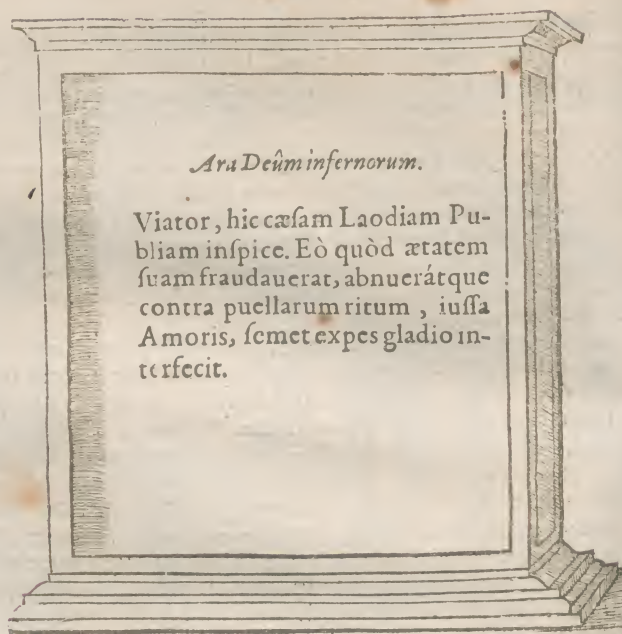 Ara Deûm infernorum.
Viator, hic cæſam Laodiam Pu-
bliam inſpice. Eò quòd ætatem
ſuam fraudauerat, abnuerátque
contra puellarum ritum, iuſſa
Amoris, ſemet expes gladio in-
terfecit.